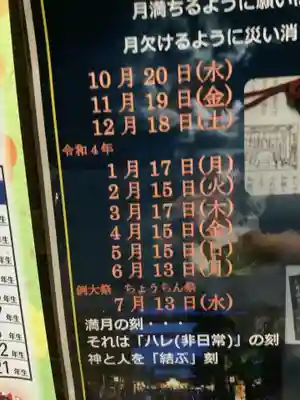 月満ちるように願い
月欠けるように災い消
10月20日(水)
11月19日(金)
12月18日(土)
令和4年
1月17日(月)
2月15日(火)
3月17日(木)
4月15日(金)
5月15日(日)
6月13日(月)
例大祭 ちょうちん祭
7月13日(水)
満月の刻・・・
それは「ハレ(非日常)」の刻
神と人を「結ぶ」刻
年生
年生
年生
年生
年生
2年生
21年生